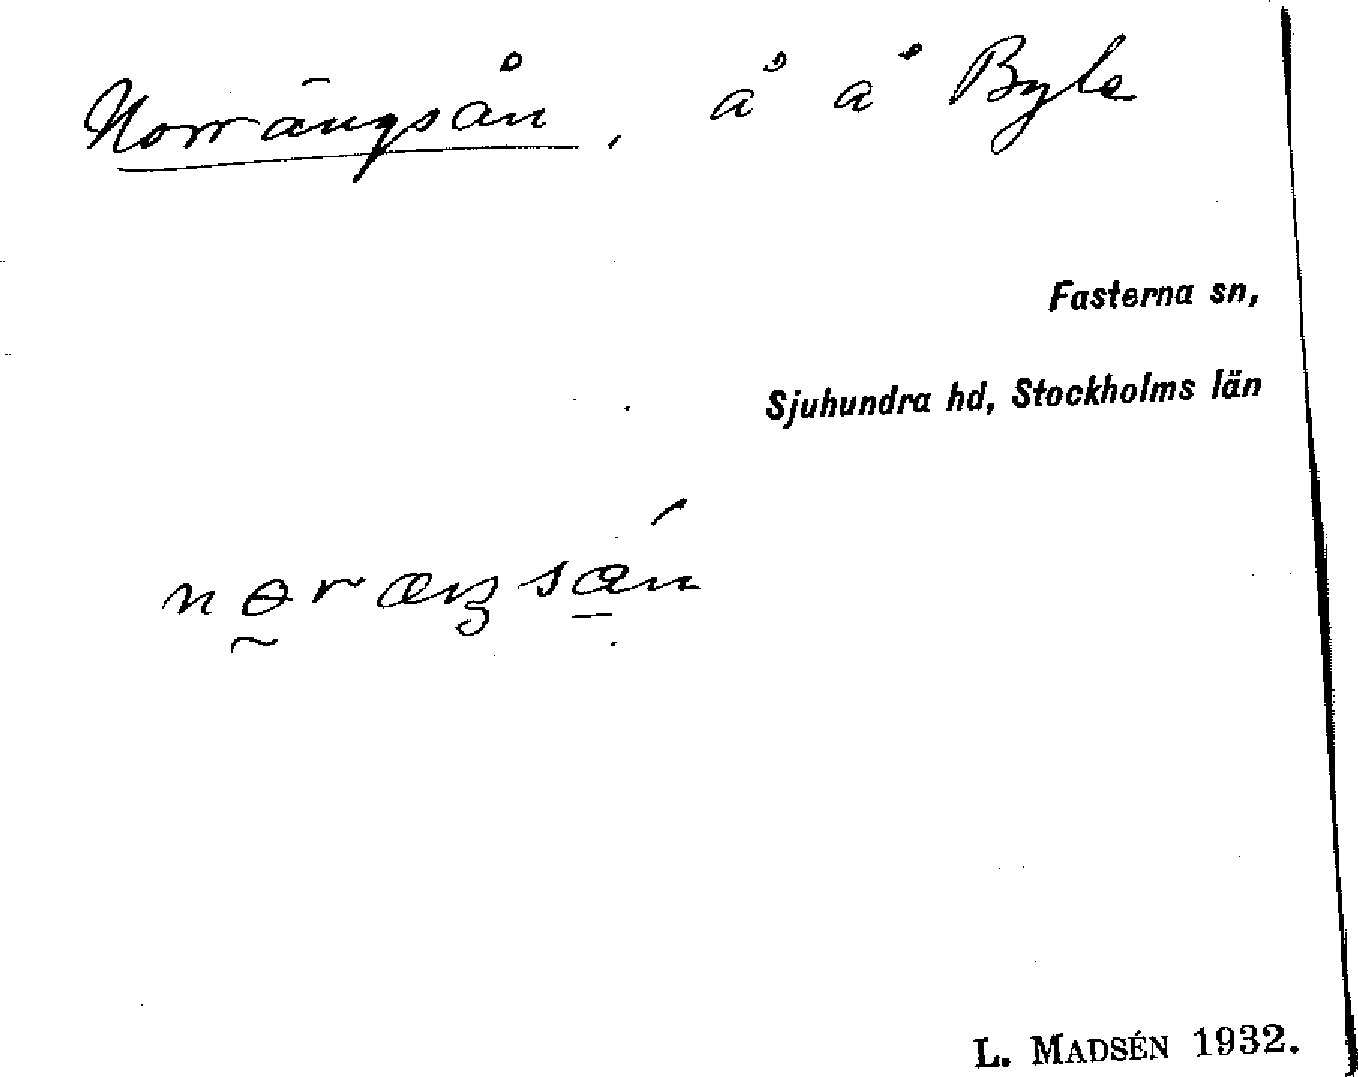 Norrängsån, å å Byle
Fasterna sn,
Sjuhundra hd, Stockholms län
nɵræŋsán
L. MADSÉN 1932.